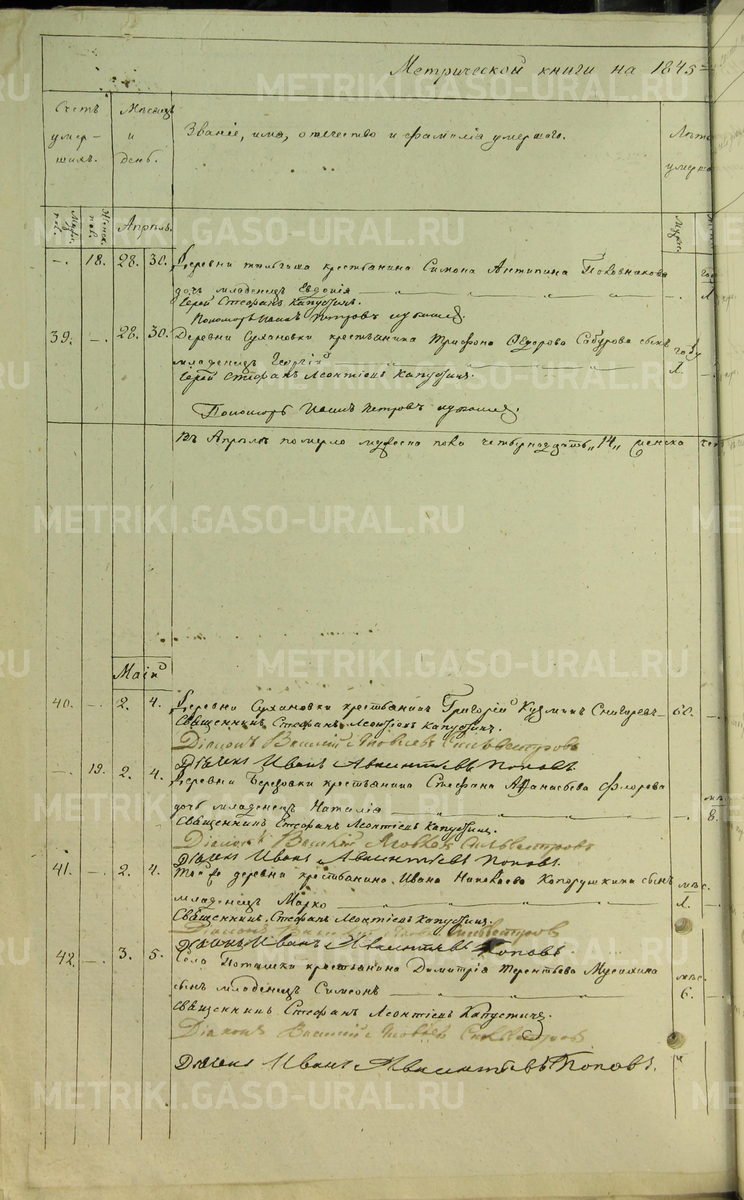 Метрической книги на 1845
Счетъ умершихъ.
Мѣсяцъ и день.
Званіе, имя, отчество и фамилія умершаго.
Лѣта умерша
Апрѣль.
—. 18. 28. 30. Деревни крестьянина Симона Антипина
дочь младенецъ Евдокія
Іерей Стефанъ Капустинъ.
Пономарь Петровъ
39. —. 28. 30. Деревни Сухановки крестьянина Трифона Ѳедорова Сабурова сынъ
младенецъ Георгій
Іерей Стефанъ Леонтіевъ Капустинъ.
Пономарь Петровъ
Въ Апрѣлѣ померло мужеска пола четырнадцать „14„ женска
Маій
40. —. 2. 4. Деревни Сухановки крестьянинъ Григорій Кузминъ 60.
Священникъ Стефанъ Леонтіевъ Капустинъ.
Діаконъ Василій Яковлевъ Сильвестровъ
Дьячекъ Иванъ Авксентьевъ Поповъ
—. 19. 2. 4. Деревни Березовки крестьянина Стефана Аѳанасьева Флорова
дочь младенецъ Наталія —. 8.
Священникъ Стефанъ Леонтіевъ Капустинъ.
Діаконъ Василій Яковлевъ Сильвестровъ
Дьячекъ Иванъ Авксентьевъ Поповъ.
41. —. 2. 4. Той же деревни крестьянина Ивана Николаева сынъ мѣс.
младенецъ Марко
Священникъ Стефанъ Леонтіевъ Капустинъ.
Діаконъ Василій Яковлевъ Сильвестровъ
Дьячекъ Иванъ Авксентьевъ Поповъ.
42. —. 3. 5. Села Поташки крестьянина Димитрія Терентьева Мусихина мѣс.
сынъ младенецъ Симеонъ 6.
Священникъ Стефанъ Леонтіевъ Капустинъ.
Діаконъ Василій Яковлевъ Сильвестровъ
Дьячекъ Иванъ Авксентьевъ Поповъ.
METRIKI.GASO-URAL.RU